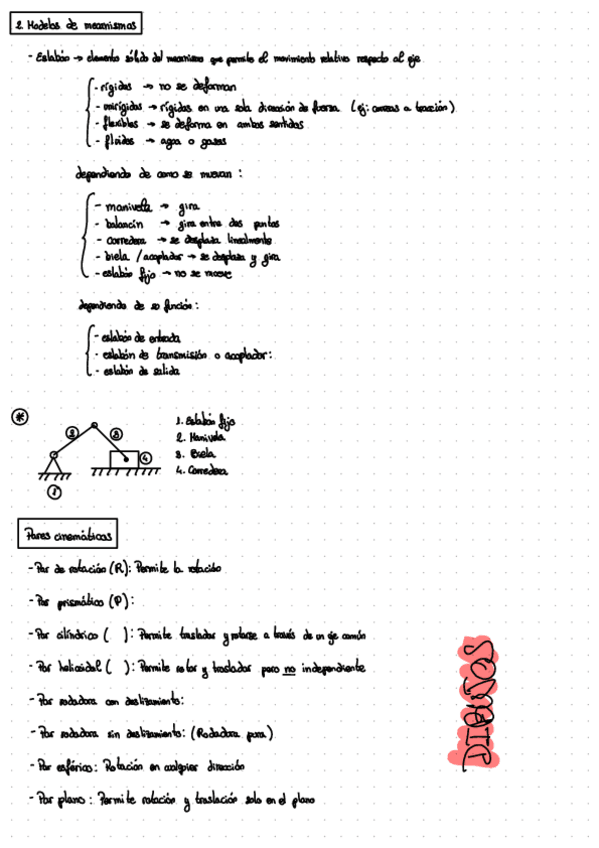 2. Modelos de mecanismos
- Eslabón → elemento sólido del mecanismo que permite el movimiento relativo respecto al eje
- rígidos → no se deforman
- unirígidos → rígidos en una sola dirección de fuerza (ej: correas a tracción)
- flexibles → se deforma en ambos sentidos
- fluidos → agua o gases
dependiendo de como se muevan:
- manivela → gira
- balancín → gira entre dos puntos
- corredera → se desplaza linealmente
- biela / acoplador → se desplaza y gira
- eslabón fijo → no se mueve
dependiendo de su función:
- eslabón de entrada
- eslabón de transmisión o acoplador:
- eslabón de salida
*
2 3 4
1
1. Eslabón fijo
2. Manivela
3. Biela
4. Corredera
Pares cinemáticos
- Par de rotación (R): Permite la rotación
- Par prismático (P):
- Par cilíndrico ( ): Permite trasladar y rotarse a través de un eje común
- Par helicoidal ( ): Permite rotar y trasladar pero no independiente
- Par rodadora con deslizamiento:
- Par rodadora sin deslizamiento: (Rodadora pura)
- Par esférico: Rotación en cualquier dirección
- Par plano: Permite rotación y traslación solo en el plano
DIBUJOS